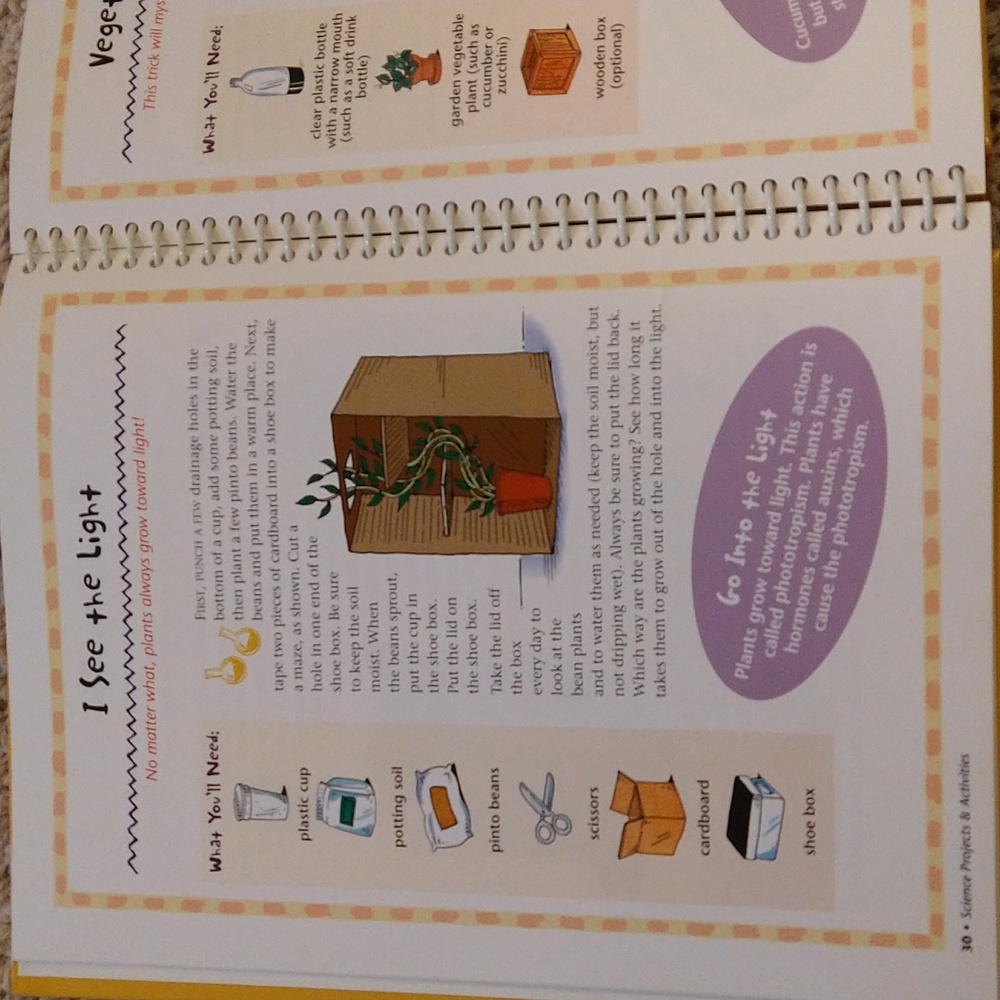 I See the Light
No matter what, plants always grow toward light!
What You'll Need:
plastic cup
potting soil
pinto beans
scissors
cardboard
shoe box
FIRST, PUNCH A FEW drainage holes in the
bottom of a cup, add some potting soil,
then plant a few pinto beans. Water the
beans and put them in a warm place. Next,
tape two pieces of cardboard into a shoe box to make
a maze, as shown. Cut a
hole in one end of the
shoe box. Be sure
to keep the soil
moist. When
the beans sprout,
put the cup in
the shoe box.
Put the lid on
the shoe box.
Take the lid off
the box
every day to
look at the
bean plants
and to water them as needed (keep the soil moist, but
not dripping wet). Always be sure to put the lid back.
Which way are the plants growing? See how long it
takes them to grow out of the hole and into the light.
Go Into the Light
Plants grow toward light. This action is
called phototropism. Plants have
hormones called auxins, which
cause the phototropism.
30 • Science Projects & Activities
Veget
This trick will mys
What You'll Need:
clear plastic bottle
with a narrow mouth
(such as a soft drink
bottle)
garden vegetable
plant (such as
cucumber or
zucchini)
wooden box
(optional)
Cucum
but